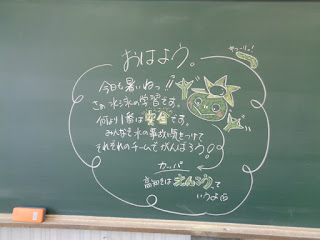 おはよう。
きゅーりっ!
今日も暑いねっ!!
さあ 水泳の学習です。
何より1番は安全です。
みんなで水の事故に気をつけて
それぞれのチームでがんばろう!!
カッパ
高知では えんこうって
いうよ